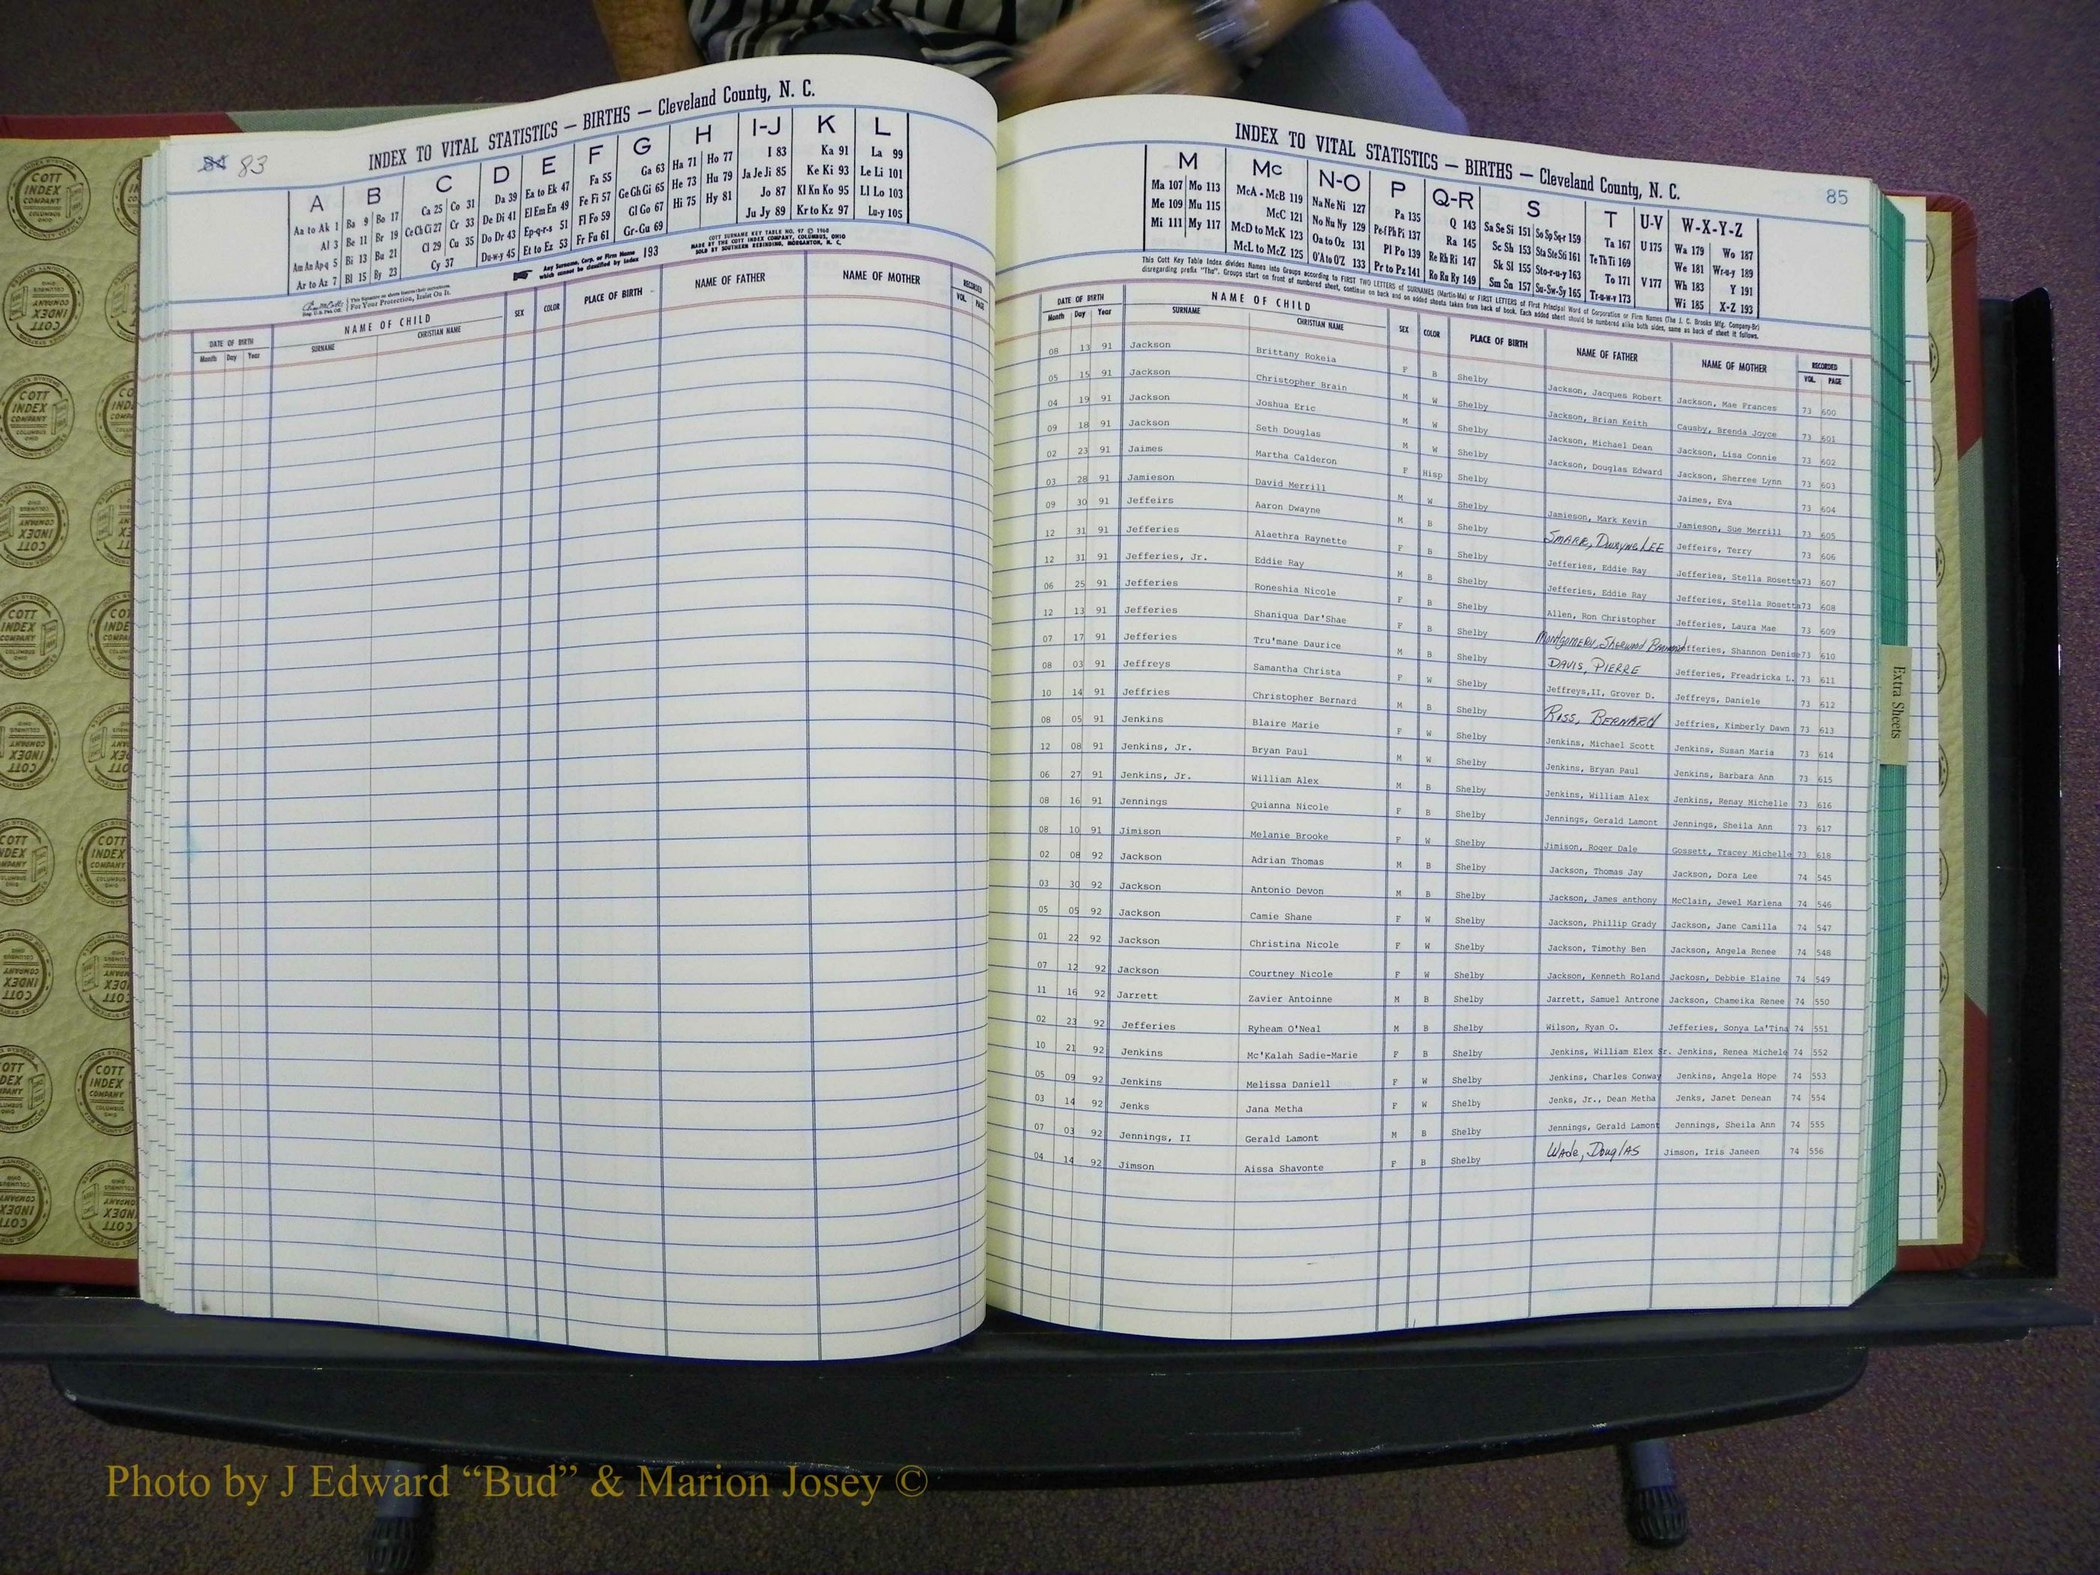 84 83
INDEX TO VITAL STATISTICS — BIRTHS — Cleveland County, N. C.
A B C D E F G H I-J K L
Aa to Ak 1 Ba 9 Bo 17 Ca 25 Co 31 Da 39 Ea to Ek 47 Fa 55 Ga 63 Ha 71 Ho 77 I 83 Ka 91 La 99
Al 3 Be 11 Br 19 Ce Ch Ci 27 Cr 33 De Di 41 El Em En 49 Fe Fi 57 Ge Gh Gi 65 He 73 Hu 79 Ja Je Ji 85 Ke Ki 93 Le Li 101
Am An Ap-q 5 Bi 13 Bu 21 Cl 29 Cu 35 Do Dr 43 Ep-q-r-s 51 Fl Fo 59 Gl Go 67 Hi 75 Hy 81 Jo 87 Kl Kn Ko 95 Ll Lo 103
Ar to Az 7 Bl 15 By 23 Cy 37 Du-w-y 45 Et to Ez 53 Fr Fu 61 Gr-Gu 69 Ju Jy 89 Kr to Kz 97 Lu-y 105
COTT SURNAME KEY TABLE NO. 97 © 1960
MADE BY THE COTT INDEX COMPANY, COLUMBUS, OHIO
SOLD BY SOUTHERN REBINDING, MORGANTON, N. C.
Any Surname, Corp. or Firm Name which cannot be classified by Index 193
For Your Protection, Insist On It.
DATE OF BIRTH NAME OF CHILD SEX COLOR PLACE OF BIRTH NAME OF FATHER NAME OF MOTHER RECORDED
Month Day Year SURNAME CHRISTIAN NAME VOL. PAGE
INDEX TO VITAL STATISTICS — BIRTHS — Cleveland County, N. C.
85
M Mc N-O P Q-R S T U-V W-X-Y-Z
Ma 107 Mo 113 McA - McB 119 Na Ne Ni 127 Pa 135 Q 143 Sa Se Si 151 So Sp Sq-r 159 Ta 167 U 175 Wa 179 Wo 187
Me 109 Mu 115 McC 121 No Nu Ny 129 Pe-f Ph Pi 137 Ra 145 Sc Sh 153 Sta Ste Sti 161 Te Th Ti 169 We 181 Wr-u-y 189
Mi 111 My 117 McD to McK 123 Oa to Oz 131 Pl Po 139 Re Rh Ri 147 Sk Sl 155 Sto-r-u-y 163 To 171 V 177 Wh 183 Y 191
McL to McZ 125 O'A to O'Z 133 Pr to Pz 141 Ro Ru Ry 149 Sm Sn 157 Su-Sw-Sy 165 Tr-u-w-y 173 Wi 185 X-Z 193
This Cott Key Table Index divides Names into Groups according to FIRST TWO LETTERS of SURNAMES (Martin-Ma) or FIRST LETTERS of First Principal Word of Corporation or Firm Names (The J. C. Brooks Mfg. Company-Br)
disregarding prefix "The". Groups start on front of numbered sheet, continue on back and on added sheets taken from back of book. Each added sheet should be numbered alike both sides, same as back of sheet it follows.
DATE OF BIRTH NAME OF CHILD SEX COLOR PLACE OF BIRTH NAME OF FATHER NAME OF MOTHER RECORDED
Month Day Year SURNAME CHRISTIAN NAME VOL. PAGE
08 13 91 Jackson Brittany Rokeia F B Shelby Jackson, Jacques Robert Jackson, Mae Frances 73 600
05 15 91 Jackson Christopher Brain M W Shelby Jackson, Brian Keith Causby, Brenda Joyce 73 601
04 19 91 Jackson Joshua Eric M W Shelby Jackson, Michael Dean Jackson, Lisa Connie 73 602
09 18 91 Jackson Seth Douglas M W Shelby Jackson, Douglas Edward Jackson, Sherree Lynn 73 603
02 23 91 Jaimes Martha Calderon F Hisp Shelby Jaimes, Eva 73 604
03 28 91 Jamieson David Merrill M W Shelby Jamieson, Mark Kevin Jamieson, Sue Merrill 73 605
09 30 91 Jeffeirs Aaron Dwayne M B Shelby Smarr, Dwayne Lee Jeffeirs, Terry 73 606
12 31 91 Jefferies Alaethra Raynette F B Shelby Jefferies, Eddie Ray Jefferies, Stella Rosetta 73 607
12 31 91 Jefferies, Jr. Eddie Ray M B Shelby Jefferies, Eddie Ray Jefferies, Stella Rosetta 73 608
06 25 91 Jefferies Roneshia Nicole F B Shelby Allen, Ron Christopher Jefferies, Laura Mae 73 609
12 13 91 Jefferies Shaniqua Dar'Shae F B Shelby Montgomery, Sherwood Jefferies, Shannon Denise 73 610
07 17 91 Jefferies Tru'mane Daurice M B Shelby Davis, Pierre Jefferies, Freadricka L. 73 611
08 03 91 Jeffreys Samantha Christa F W Shelby Jeffreys,II, Grover D. Jeffreys, Daniele 73 612
10 14 91 Jeffries Christopher Bernard M B Shelby Ross, Bernard Jeffries, Kimberly Dawn 73 613
08 05 91 Jenkins Blaire Marie F W Shelby Jenkins, Michael Scott Jenkins, Susan Maria 73 614
12 08 91 Jenkins, Jr. Bryan Paul M W Shelby Jenkins, Bryan Paul Jenkins, Barbara Ann 73 615
06 27 91 Jenkins, Jr. William Alex M B Shelby Jenkins, William Alex Jenkins, Renay Michelle 73 616
08 16 91 Jennings Quianna Nicole F B Shelby Jennings, Gerald Lamont Jennings, Sheila Ann 73 617
08 10 91 Jimison Melanie Brooke F W Shelby Jimison, Roger Dale Gossett, Tracey Michelle 73 618
02 08 92 Jackson Adrian Thomas M B Shelby Jackson, Thomas Jay Jackson, Dora Lee 74 545
03 30 92 Jackson Antonio Devon M B Shelby Jackson, James anthony McClain, Jewel Marlena 74 546
05 05 92 Jackson Camie Shane F W Shelby Jackson, Phillip Grady Jackson, Jane Camilla 74 547
01 22 92 Jackson Christina Nicole F W Shelby Jackson, Timothy Ben Jackson, Angela Renee 74 548
07 12 92 Jackson Courtney Nicole F W Shelby Jackson, Kenneth Roland Jackosn, Debbie Elaine 74 549
11 16 92 Jarrett Zavier Antoinne M B Shelby Jarrett, Samuel Antrone Jackson, Chameika Renee 74 550
02 23 92 Jefferies Ryheam O'Neal M B Shelby Wilson, Ryan O. Jefferies, Sonya La'Tina 74 551
10 21 92 Jenkins Mc'Kalah Sadie-Marie F B Shelby Jenkins, William Elex Sr. Jenkins, Renea Michele 74 552
05 09 92 Jenkins Melissa Daniell F W Shelby Jenkins, Charles Conway Jenkins, Angela Hope 74 553
03 14 92 Jenks Jana Metha F W Shelby Jenks, Jr., Dean Metha Jenks, Janet Denean 74 554
07 03 92 Jennings, II Gerald Lamont M B Shelby Jennings, Gerald Lamont Jennings, Sheila Ann 74 555
04 14 92 Jimson Aissa Shavonte F B Shelby Wade, Douglas Jimson, Iris Janeen 74 556
Extra Sheets
COTT INDEX COMPANY COLUMBUS OHIO
Photo by J Edward “Bud” & Marion Josey ©